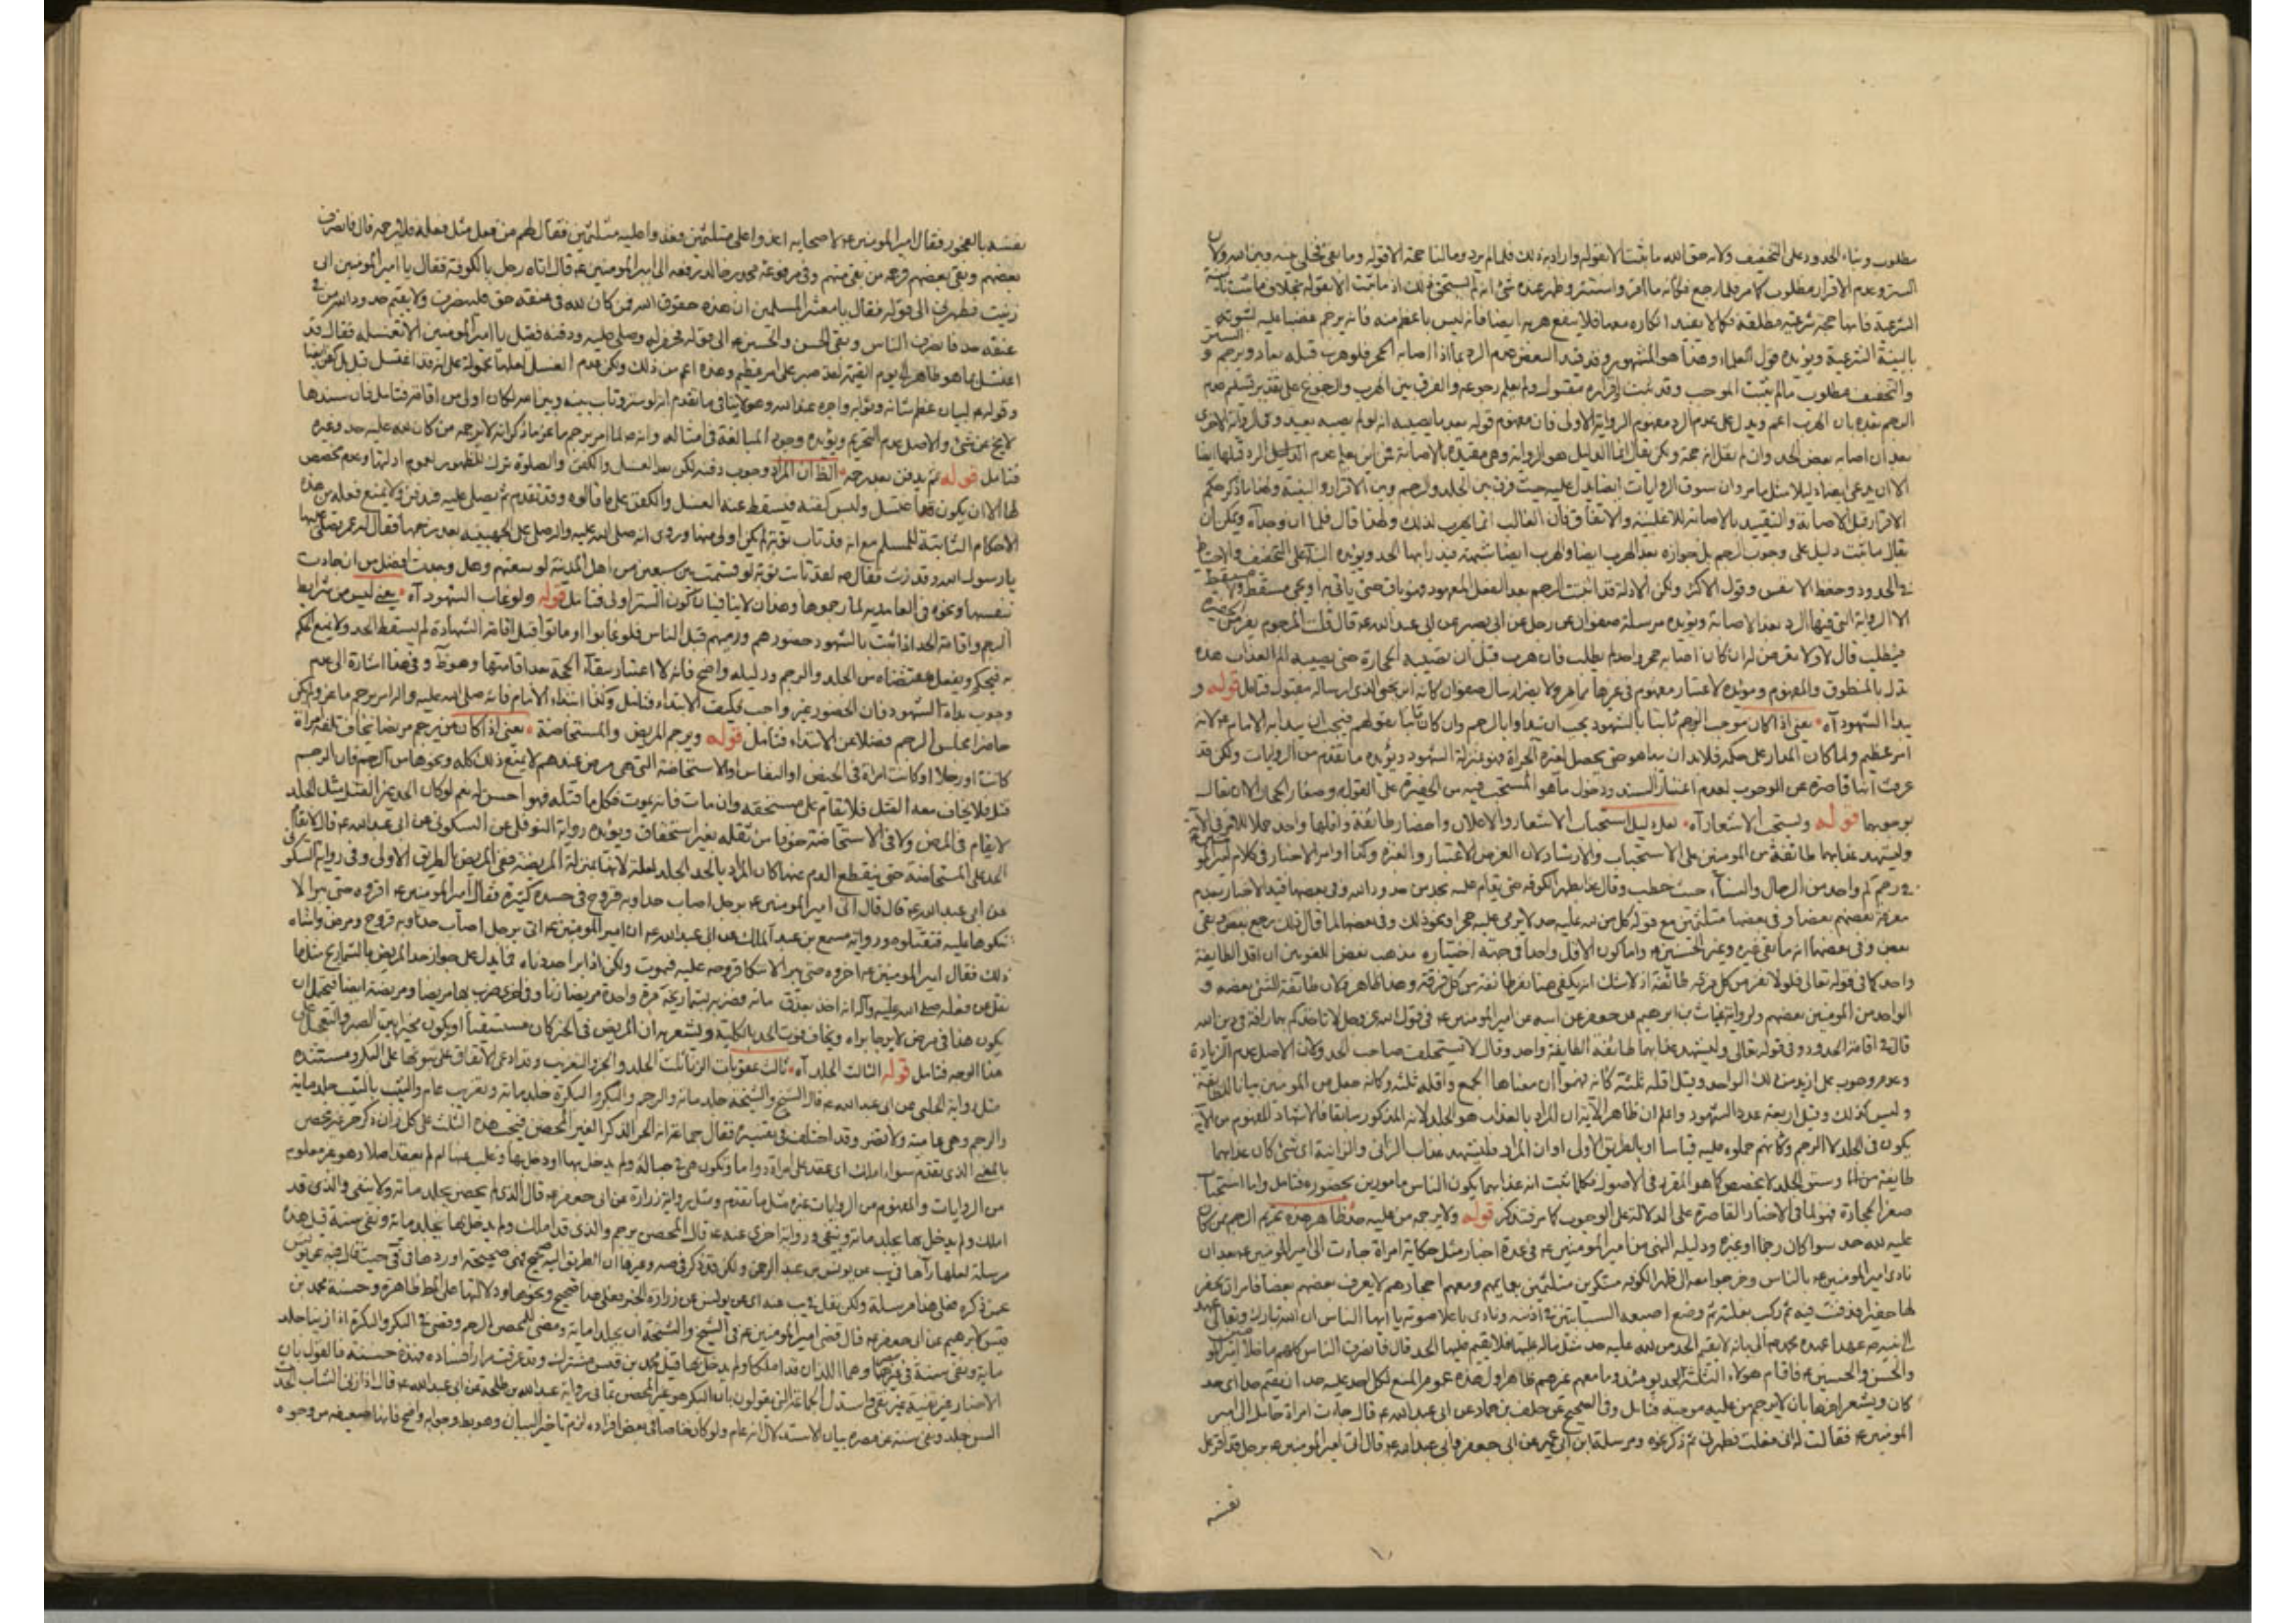 مطلوب وبناء الحدود على التخفيف ولانه حق الله ما ثبت الا بقوله واراد به ذلك فلما لم يرد وما لنا حجة الا قوله وما بقى فخلى بينه وبين الله ولان
الستر وعدم الاقرار مطلوب كما مر فلما رجع فكانه ما اقر واستتر وظهر عنده شئ انه لم يستحق ذلك اذ ما ثبت الا بقوله بخلاف ما ثبت بالبينة
الشرعية فانها حجة شرعية مطلقة فكما لا يفيد انكاره معها فلا ينفع هربه ايضا فانه ليس باعظم منه فانه يرجم غضبا عليه لثبوته
بالبينة الشرعية ويؤيده قول العلماء وهذا هو المشهور وقد قيد البعض عدم الرد بما اذا اصابه الحجر فلو هرب قبله يعاد ويرجم و الستر
والتخفيف مطلوب ما لم يثبت الموجب وقد ثبت اقراره مقبول ولم يعلم رجوعه والفرق بين الهرب والرجوع على تقدير تسليم عدم
الرجم بعده بان الهرب اعم ويدل على عدم الرد مفهوم الرواية الاولى فان مفهوم قوله بعد ما يصيبه انه لو لم يصبه يعيد وفى الرواية الاخرى
بعد ان اصابه بعض الحد وان لم نقل انه حجة ولكن يقال انما الدليل هو الرواية وهى مقيدة بالاصابة فمن اين يعلم عدم الدليل الرد قبلها ايضا
الا ان يدعى ايضا دليلا مثل ما مر وان سوق الروايات ايضا يدل عليه حيث فرق بين الجلد والرجم وبين الاقرار والبينة ولهذا ما ذكر حكم
الاقرار قبل الاصابة والتقييد بالاصابة للاغلبية والاتفاق فان الغالب انما يهرب لذلك ولهذا قال فلما ان وجد اه ويمكن ان
يقال ما ثبت دليل على وجوب الرجم بل جوازه بعد الهرب ايضا والهرب ايضا شبهة فيدرأ بها الحد ويؤيده البناء على التخفيف والاحتياط
فى الحدود وحفظ الانفس وقول الاكثر ولكن الادلة قد اثبتت الرجم بعد الفعل المعهود ويؤيد حتى ياتى ما هو مسقط ولا مسقط
الا الرواية التى فيها الرد بعد الاصابة ويؤيده مرسلة صفوان عن رجل عن ابى بصير عن ابى عبد الله ع قال قلت المرجوم يفر من الحفيرة
فيطلب قال لا ولا يعرض له ان كان اصابه حجر واحد لم يطلب فان هرب قبل ان تصيبه الحجارة حتى يصيبه الم العذاب هذه
تدل بالمنطوق والمفهوم ومؤيدة لاعتبار مفهوم فى غيرها مما مر ولا يضر ارسال صفوان كانه ابن يحيى الذى ارساله مقبول فتامل قوله و
يبدا الشهود آه يعنى اذا كان موجب الرجم ثابتا بالشهود يجب ان يبداوا بالرجم وان كان ثابتا بقولهم فيجب ان يبدا به الامام ع لانه
امر عظيم ولما كان المدار على حكمه فلابد ان يبدا هو حتى يحصل لغيره الجراة فهو بمنزلة الشهود ويؤيده ما تقدم من الروايات ولكن قد
عرفت انها قاصرة عن الوجوب لعدم اعتبار السند ودخول ما هو المستحب فيه من الحفيرة على القول وصغار الحجار الا ان يقال
بوجوبها قوله ويستحب الاشعار آه لعل دليل استحباب الاشعار والاعلان واحضار طائفة واقلها واحد حملا للامر فى الآية
وليشهد عذابهما طائفة من المؤمنين على الاستحباب والارشاد لان الغرض الاعتبار والعبرة وكذا اوامر الاحضار فى كلام امير المؤمنين ع
فى رجم كم واحد من الرجال والنساء حيث خطب وقال عند ظهر الكوفة حتى يقام عليه بحد من حدود الله وفى بعضها قيد الاحضار بعدم
معرفة بعضهم بعضا وفى بعضها متلثمين مع قوله كل من لله عليه حد لا يرمى عليه حجرا ونحو ذلك وفى بعضها لما قال ذلك رجع بعض وبقى
بعض وفى بعضها انه ما بقى غيره وغير الحسنين ع واما كون الاقل واحدا فحجته اختياره مذهب بعض اللغويين ان اقل الطايفة
واحد كما فى قوله تعالى فلولا نفر من كل فرقة طائفة اذ لا شك انه يكفى هنا نفر طائفة من كل فرقة وهذا ظاهر ولان طائفة الشئ بعضه و
الواحد من المؤمنين بعضهم ولرواية غياث بن ابرهيم عن جعفر عن ابيه عن امير المؤمنين ع فى قول الله عز وجل لا تاخذكم بهما رافة فى دين الله
قال فى اقامة الحدود وفى قوله تعالى وليشهد عذابهما طائفة الطايفة واحد وقال لا يستحلف صاحب الحد ولان الاصل عدم الزيادة
وعدم وجوب على ازيد من ذلك الواحد وقيل اقله ثلثة كانه فهموا ان معناها الجمع واقله ثلثه وكانه جعل من المؤمنين بيانا للطايفة
وليس كذلك وقيل اربعة عدد الشهود واعلم ان ظاهر الآية ان المراد بالعذاب هو الجلد لانه المذكور سابقا فالاشهاد المفهوم من الآية
يكون فى الجلد لا الرجم وكانهم حملوه عليه قياسا او بالطريق الاولى او ان المراد وليشهد عذاب الزانى والزانية اى شئ كان عذابهما
طايفة من الناس وسبق الجلد لا يخصص كما هو المقرر فى الاصول فكلما ثبت انه عذابهما يكون الناس مامورين بحضوره فتامل واما استحباب
صغر الحجارة فهو لما فى الاخبار القاصرة على الدلالة على الوجوب كما مر فتذكر قوله ولا يرجمه من عليه حد ظاهر هذه تحريم الرجم من كان
عليه لله حد سواء كان رجما او غيره ودليله النهى من امير المؤمنين ع فى عدة اخبار مثل حكاية امراة جاءت الى امير المؤمنين ع بعد ان
نادى امير المؤمنين ع بالناس وخرجوا معه الى ظهر الكوفة متنكرين متلثمين بعمايمهم ومعهم احجارهم لا يعرف بعضهم بعضا فامر ان يحفر
لها حفيرة ودفنت فيه ثم ركب بغلته ثم وضع اصبعيه السبابتين فى اذنيه ونادى باعلا صوته يا ايها الناس ان الله تبارك وتعالى عهد
الى نبيه ص عهدا عهده محمد ص الى بانه لا يقيم الحد من لله عليه حد مثل ماله عليها فلا يقيم عليها الحد قال فانصرف الناس كلهم ما خلا امير المؤمنين
والحسن والحسين ع فاقام هؤلاء الثلثة الحد يومئذ وما معهم غيرهم ظاهر اول هذه عموم المنع لكل احد عليه حد ان يقيم حدا اى حد
كان ويشعر اخرها بان لا يرجم من عليه موجبه فتامل وفى الصحيح عن خلف بن حماد عن ابى عبد الله ع قال جاءت امراة حامل الى امير
المؤمنين ع فقالت له انى فعلت فطهرنى ثم ذكر نحوه ومرسلة ابن ابى عمير عن ابى جعفر وابى عبد الله ع قال اتى امير المؤمنين ع برجل قد اقر على
نفسه
نفسه بالفجور فقال امير المؤمنين ع لاصحابه اغدوا على متلثمين فغدوا عليه متلثمين فقال لهم من فعل مثل فعله فلا يرجمه قال فانصرف
بعضهم وبقى بعضهم فرجمه من بقى منهم وفى مرفوعة محمد بن خالد رفعه الى امير المؤمنين ع قال اتاه رجل بالكوفة فقال يا امير المؤمنين انى
زنيت فطهرنى الى قوله فقال يا معشر المسلمين ان هذه حقوق الله فمن كان لله فى عنقه حق فلينصرف ولا يقيم حدود الله من فى
عنقه حد فانصرف الناس وبقى الحسن والحسين ع الى قوله فحفر له وصلى عليه ودفنه فقيل يا امير المؤمنين الا تغسله فقال قد
اغتسل بما هو طاهر الى يوم القيمة لقد صبر على امر عظيم وهذه اعم من ذلك ولكن عدم الغسل لعلها محمولة على انه قد اغتسل قبل بل كفن ايضا
وقوله ع لبيان عظم شانه وثوابه واجره عند الله وهو لا ينافى ما تقدم انه لو ستر وتاب بينه وبين الله لكان اولى من اقامة فتامل فان سندها
لا يخ عن شئ والاصل عدم التحريم ويؤيده وجود المبالغة فى امثاله وانه ص لما امر برجم ماعز ما ذكر انه لا يرجمه من كان لله عليه حد وغيره
فتامل قوله ثم يدفن بعد رجمه الظ ان المراد وجوب دفنه لكن بعد الغسل والكفن والصلوة ترك للظهور لعموم ادلتها وعدم مخصص
لها الا ان يكون قدما غتسل ولبس كفنه فيسقط عنه الغسل والكفن على ما قالوه وقد تقدم ثم يصلى عليه فيدفن ولا يمنع فعله من هذه
الاحكام الثابتة للمسلم مع انه قد تاب توبة لم يكن اولى منها وروى انه صلى الله عليه واله صلى على الجهينية بعد رجمها فقال له عمر تصلى عليها
يا رسول الله وقد زنت فقال ص لقد تابت توبة لو قسمت بين سبعين من اهل المدينة لوسعتهم وهل وجدت افضل من ان جادت
بنفسها ونحوه فى الغامدية لما رجموها وهذان لا ينافيان كون الستر اولى فتامل قوله ولو غاب الشهود آه يعنى ليس من شرايط
الرجم واقامة الحد اذا ثبت بالشهود حضورهم ورميهم قبل الناس فلو غابوا او ماتوا قبل اقامة الشهادة لم يسقط الحد ولا يمنع الحكم
به فيحكم ويفعل مقتضاه من الجلد والرجم ودليله واضح فانه لا اعتبار ببقاء الحجة بعد اقامتها وهو ظ وفى هذا اشارة الى عدم
وجوب بداة الشهود فان الحضور غير واجب فكيف الابتداء فتامل وكذا ابتداء الامام فانه صلى الله عليه واله امر برجم ماعز ولم يكن
حاضرا مجلس الرجم فضلا عن الابتداء فتامل قوله ويرجم المريض والمستحاضة يعنى اذا كان من يرجم مريضا يخاف تلفه امراة
كانت او رجلا او كانت امراة فى الحيض او النفاس او الاستحاضة التى هى مرض عندهم لا يمنع ذلك كله ونحوها من الرجم فان الرجم
قتل فلا يخاف معه القتل فلا يقام على مستحقه وان مات فانه يموت فكل ما قتله فهو احسن له نعم لو كان الحد غير القتل مثل الجلد
لا يقام فى المرض ولا فى الاستحاضة خوفا من تقتله بغير استحقاق ويؤيده رواية النوفلى عن السكونى عن ابى عبد الله ع قال لا يقام
الحد على المستحاضة حتى ينقطع الدم عنها كان المراد بالحد الجلد لعله لانها بمنزلة المريضة ففى المريض بالطريق الاولى وفى رواية السكونى
عن ابى عبد الله ع قال قال اتى امير المؤمنين ع برجل اصاب حدا وبه قروح فى جسده كثيرة فقال امير المؤمنين ع اقروه حتى يبرا لا
تنكوها عليه فتقتلوه ورواية مسمع بن عبد الملك عن ابى عبد الله ع ان امير المؤمنين ع اتى برجل اصاب حدا وبه قروح ومرض واشباه
ذلك فقال امير المؤمنين ع اخروه حتى يبرا لا تنكا قروحه عليه فيموت ولكن اذا برا حددناه فما يدل على جواز حد المريض بالشماريخ مثل ما
نقل عن فعله صلى الله عليه واله انه اخذ بعذق مائة فضربه بشماريخه مرة واحدة مريضا زنا وفى اخرى ضرب بها مريضا ومريضة ايضا فيحمل ان
يكون هذا فى مرض لا يرجا براه ويخاف فوت الحد بالكلية ويشعر به ان المريض فى الخبر كان مستسقيا او يكون مخيرا بين الصبر والتعجيل على
هذا الوجه فتامل قوله الثالث الجلد آه ثالث عقوبات الزنا ثلث الجلد والجز والتغريب وقد ادعى الاتفاق على ثبوتها على البكر ومستنده
مثل رواية الحلبى عن ابى عبد الله ع قال الشيخ والشيخة جلد مائة والرجم والبكر والبكرة جلد مائة وتغريب عام والثيب بالثيب جلد ماية
والرجم وهى عامية ولا تضر وقد اختلف فى تفسيره فقال جماعة انه الحر الذكر الغير المحصن فيجب هذه الثلث على كل زان ذكر حر غير محصن
بالمعنى الذى تقدم سواء املك اى عقد على امراة دواما وتكون هى فى حباله ولم يدخل بها او دخل بها وغاب عنها ام لم يعقد اصلا وهو غير معلوم
من الروايات والمفهوم من الروايات غيره مثل ما تقدم ومثل رواية زرارة عن ابى جعفر ع قال الذى لم يحصن يجلد مائة ولا ينفى والذى قد
املك ولم يدخل بها يجلد مائة وينفى ورواية اخرى عنه ع قال المحصن يرجم والذى قد املك ولم يدخل بها يجلد مائة ونفى سنة قيل هذه
مرسلة لعلها رآها فى يب عن يونس بن عبد الرحمن ولكن قد ذكر فى صه وغيرها ان الطريق اليه صحيح فهى صحيحة اوردها فى فى حيث قال فيه عن يونس
عمن ذكره فعلى هذا مرسلة ولكن نقل فى يب هذه اى عن يونس عن زرارة الخبر فعلى هذا صحيح ونحوها ودلالتها على المط ظاهرة وحسنة محمد بن
قيس عن ابى جعفر ع قال قضى امير المؤمنين ع فى الشيخ والشيخة ان يجلدا مائة وقضى للمحصن الرجم وقضى فى البكر والبكرة اذا زنيا جلد
ماية ونفى سنة فى غير مصرهما وهما اللذان قد املكا ولم يدخل بها قيل محمد بن قيس مشترك وقد عرفت مرارا فساده فهذه حسنة فالقول بان
الاخبار غير نقية غير نقى واستدل الجماعة الذين يقولون بان البكر هو غير المحصن بما فى رواية عبد الله بن طلحة عن ابى عبد الله ع قال اذا زنى الشاب الحدث
السن جلد ونفى سنة عن مصره بيان الاستدلال انه عام ولو كان خاصا فى بعض افراده لزم تاخير البيان وهو بط وجوابه واضح فانها ضعيفة من وجوه